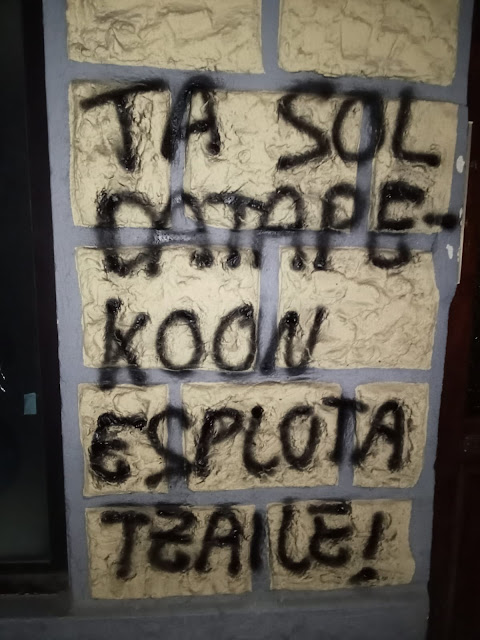 TA SOL
DATAPE-
KOON
ESPLOTA
TZAILE!